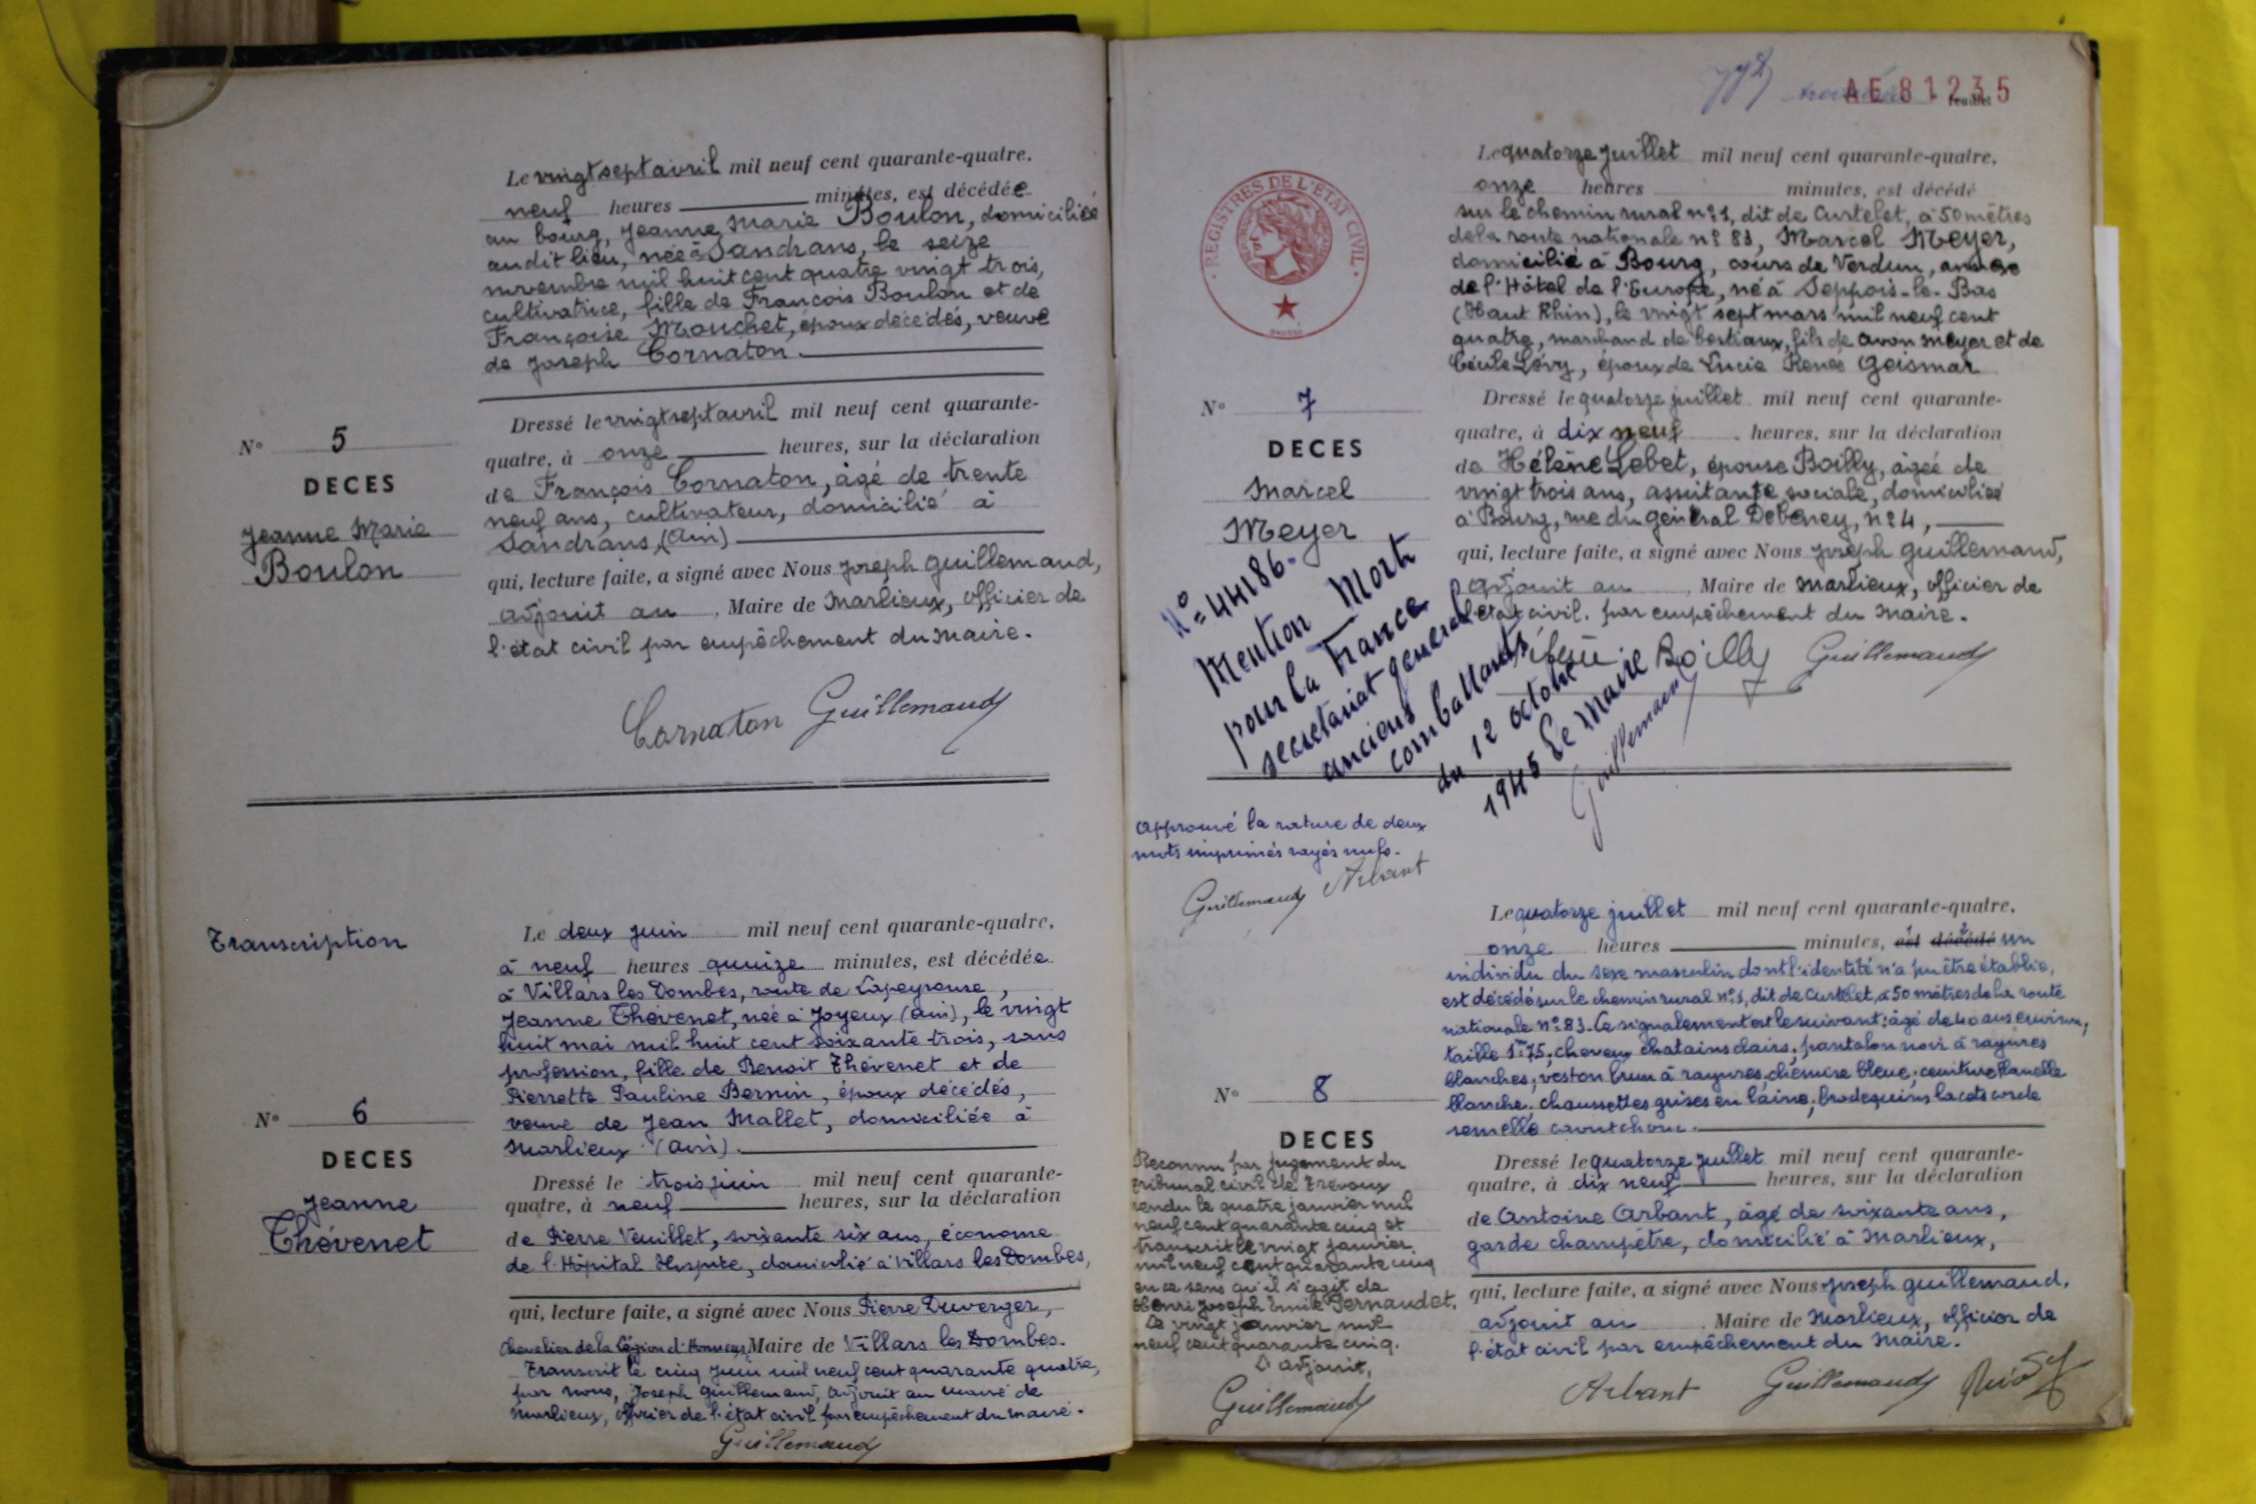 Le vingt sept avril mil neuf cent quarante-quatre,
neuf heures minutes, est décédée
au bourg, Jeanne Marie Boulon, domiciliée
audit lieu, née à Sandrans, le seize
novembre mil huit cent quatre vingt trois,
cultivatrice, fille de François Boulon et de
Françoise Mouchet, époux décédés, veuve
de Joseph Cornaton.
N° 5
DECES
Jeanne Marie
Boulon
Dressé le vingt sept avril mil neuf cent quarante-
quatre, à onze heures, sur la déclaration
de François Cornaton, âgé de trente
neuf ans, cultivateur, domicilié à
Sandrans (Ain)
qui, lecture faite, a signé avec Nous Joseph Guillemaud,
adjoint au Maire de Marlieux, officier de
l'état civil par empêchement du Maire.
Cornaton Guillemaud
Transcription
Le deux juin mil neuf cent quarante-quatre,
à neuf heures quinze minutes, est décédée
à Villars les Dombes, route de Lapeyrouse,
Jeanne Thévenet, née à Joyeux (Ain), le vingt
huit mai mil huit cent soixante trois, sans
profession, fille de Benoit Thévenet et de
Pierrette Pauline Bernin, époux décédés,
veuve de Jean Mallet, domiciliée à
Marlieux (Ain).
N° 6
DECES
Jeanne
Thévenet
Dressé le trois juin mil neuf cent quarante-
quatre, à neuf heures, sur la déclaration
de Pierre Veuillet, soixante six ans, économe
de l'Hôpital Hospice, domicilié à Villars les Dombes,
qui, lecture faite, a signé avec Nous Pierre Duverger,
Chevalier de la Légion d'Honneur, Maire de Villars les Dombes.
Transcrit le cinq juin mil neuf cent quarante quatre,
par nous, Joseph Guillemaud, adjoint au maire de
Marlieux, officier de l'état civil par empêchement du maire.
Guillemaud
AE81235
feuillet
REGISTRES DE L'ETAT CIVIL
Le quatorze juillet mil neuf cent quarante-quatre,
onze heures minutes, est décédé
sur le chemin rural n° 1, dit de Curtelet, à 50 mètres
de la route nationale n° 83, Marcel Meyer,
domicilié à Bourg, cours de Verdun,
de l'Hôtel de l'Europe, né à Seppois-le-Bas
(Haut Rhin), le vingt sept mars mil neuf cent
quatre, marchand de bestiaux, fils de Aron Meyer et de
Cécile Lévy, époux de Lucie Renée Geismar
N° 7
DECES
Marcel
Meyer
Dressé le quatorze juillet mil neuf cent quarante-
quatre, à dix neuf heures, sur la déclaration
de Hélène Lebet, épouse Boilly, âgée de
vingt trois ans, assistante sociale, domiciliée
à Bourg, rue du général Debeney, n° 4,
qui, lecture faite, a signé avec Nous Joseph Guillemaud,
adjoint au Maire de Marlieux, officier de
l'état civil. par empêchement du Maire.
Boilly Guillemaud
N° 44186.
Mention Mort
pour la France
secrétariat général
anciens
combattants
du 12 octobre
1945 Le Maire
Guillemaud
Approuvé la rature de deux
mots imprimés rayés nuls.
Guillemaud Arbant
Le quatorze juillet mil neuf cent quarante-quatre,
onze heures minutes, est décédé un
individu du sexe masculin dont l'identité n'a pu être établie,
est décédé sur le chemin rural n° 1, dit de Curtelet, à 50 mètres de la route
nationale n° 83. Le signalement est le suivant: âgé de 40 ans environ,
taille 1m75; cheveux chatains clairs; pantalon noir à rayures
blanches; veston brun à rayures, chemise bleue; ceinture flanelle
blanche; chaussettes grises en laine; brodequins lacets corde
semelle caoutchouc.
N° 8
DECES
Reconnu par jugement du
tribunal civil de Trévoux
rendu le quatre janvier mil
neuf cent quarante cinq et
transcrit le vingt janvier
mil neuf cent quarante cinq
en ce sens qu'il s'agit de
Henri Joseph Emile Pernaudet.
Le vingt janvier mil
neuf cent quarante cinq.
L'adjoint,
Guillemaud
Dressé le quatorze juillet mil neuf cent quarante-
quatre, à dix neuf heures, sur la déclaration
de Antoine Arbant, âgé de soixante ans,
garde champêtre, domicilié à Marlieux,
qui, lecture faite, a signé avec Nous Joseph Guillemaud,
adjoint au Maire de Marlieux, officier de
l'état civil par empêchement du Maire.
Arbant Guillemaud